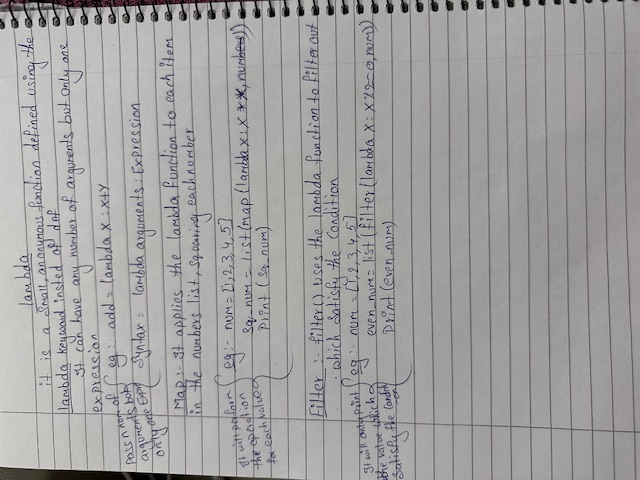 lambda
it is a small, anonymous function defined using the
lambda keyword insted of def
It can have any number of arguments but only one
expression
Pass n no. of
arguments but
only one Expr
eg: add = lambda x : x+y
Syntax = lambda arguments : Expression
Map :- It applies the lambda function to each item
in the numbers list, squaring each number
It will perform
the operation
for each value
eg:- num = [1,2,3,4,5]
sq_num = list(map(lambda x : x **, num))
Print (sq_num)
Filter :- filter() uses the lambda function to filter out
which satisfy the Condition
It will only print
the value which
satisfy the Condti
-on
eg :- num = [1,2,3,4,5]
even_num = list(filter(lambda x : x%2==0, num))
Print (even_num)